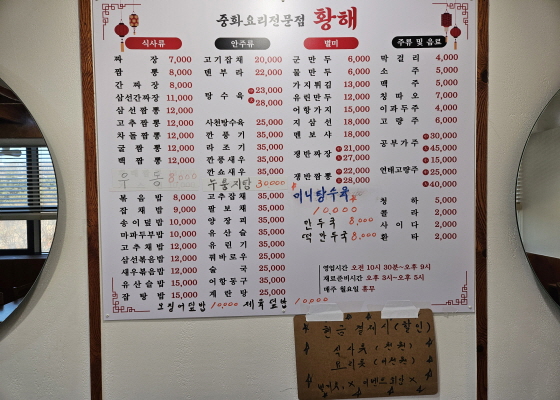 중화요리전문점 황해
식사류
짜 장 7,000
짬 뽕 8,000
간 짜 장 8,000
삼선간짜장 11,000
삼 선 짬 뽕 12,000
고 추 짬 뽕 12,000
차 돌 짬 뽕 12,000
굴 짬 뽕 12,000
백 짬 뽕 12,000
우 동 8,000
볶 음 밥 8,000
잡 채 밥 9,000
송 이 덮 밥 10,000
마파두부밥 10,000
고 추 잡 채 밥 12,000
삼선볶음밥 12,000
새우볶음밥 12,000
유 산 슬 밥 15,000
잡 탕 밥 15,000
오징어덮밥 10,000 제육덮밥 10,000
안주류
고 기 잡 채 20,000
덴 뿌 라 22,000
탕 수 육 소23,000
대28,000
사천탕수육 25,000
깐 풍 기 35,000
라 조 기 35,000
깐 풍 새 우 35,000
깐 쇼 새 우 35,000
누룽지탕 30000
고 추 잡 채 35,000
팔 보 채 35,000
양 장 피 35,000
유 산 슬 35,000
유 린 기 35,000
꿔 바 로 우 25,000
술 국 25,000
어 향 동 구 35,000
계 란 탕 25,000
별미
군 만 두 6,000
물 만 두 6,000
가 지 튀 김 13,000
유 린 만 두 12,000
어 향 가 지 15,000
지 삼 선 18,000
멘 보 샤 18,000
쟁 반 짜 장 소21,000
대27,000
쟁 반 짬 뽕 소22,000
대28,000
미니탕수육
10,000
만두국 8,000
떡만두국 8,000
영업시간 오전 10시 30분~오후 9시
재료준비시간 오후 3시~오후 5시
매주 월요일 휴무
주류 및 음료
막 걸 리 4,000
소 주 5,000
맥 주 5,000
칭 따 오 7,000
이 과 두 주 4,000
고 량 주 6,000
공 부 가 주 대30,000
중45,000
소15,000
연태고량주 중25,000
대40,000
청 하 5,000
콜 라 2,000
사 이 다 2,000
환 타 2,000
현금 결제시 (할인)
식사류 (천원)
요리류 (이천원)